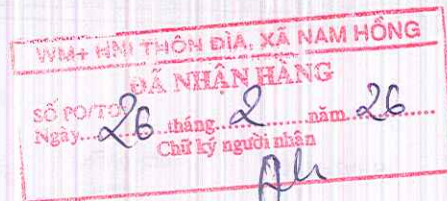 WM+ HNI THÔN ĐÌA, XÃ NAM HỒNG
ĐÃ NHẬN HÀNG
SỐ PO/TO
Ngày...26...tháng...2...năm...26...
Chữ ký người nhân